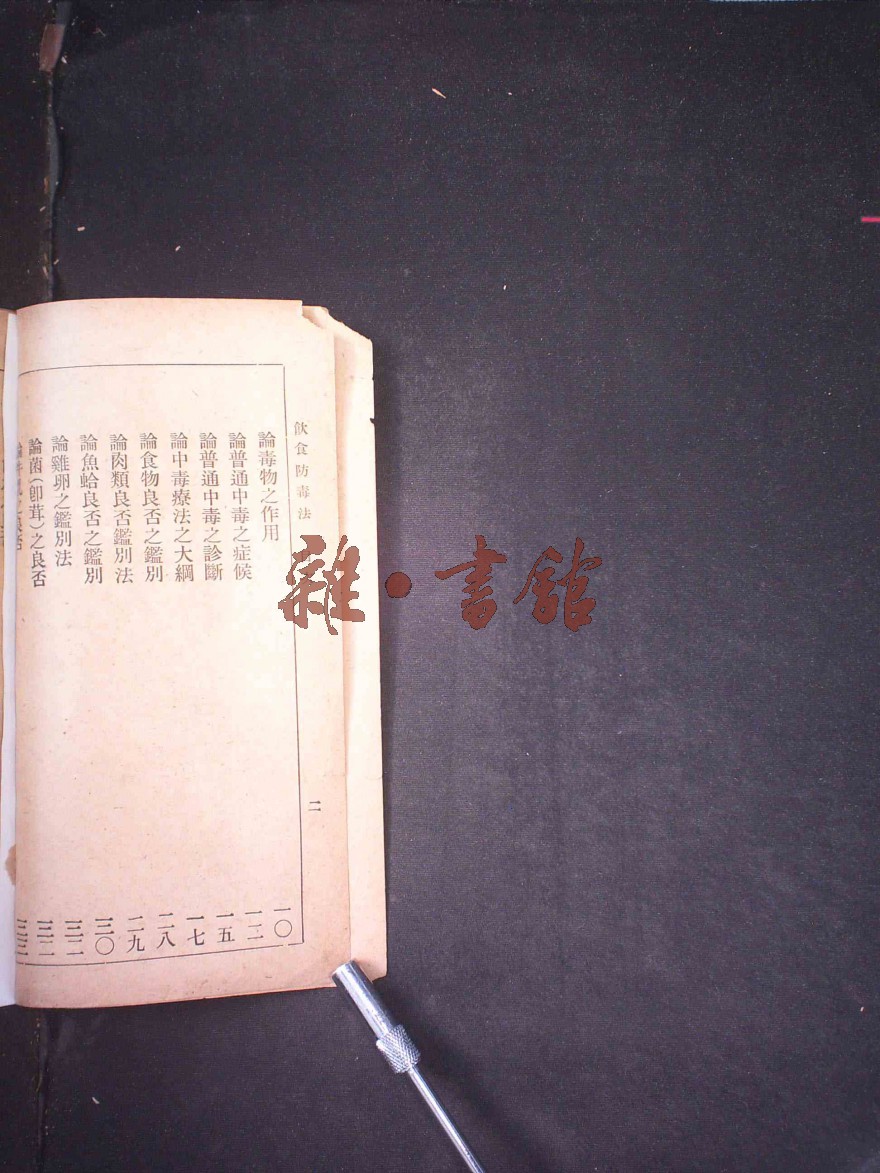 飲食防毒法 二
論毒物之作用 一〇
論普通中毒之症候 一二
論普通中毒之診斷 一五
論中毒療法之大綱 一七
論食物良否之鑑別 二八
論肉類良否鑑別法 二九
論魚蛤良否之鑑別 三〇
論雞卵之鑑別法 三二
論菌(卽茸)之良否 三二
之良否 三三
雜·書館